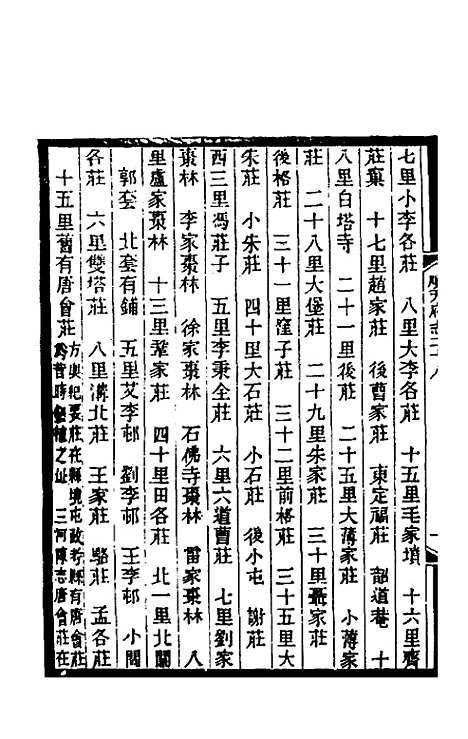 七里小李各莊　八里大李各莊　十五里毛家墳　十六里齊
莊窠　十七里趙家莊　後曹家莊　東定福莊　韶道菴　十
八里白塔寺　二十一里後莊　二十五里大薄家莊　小薄家
莊　二十八里大堡莊　二十九里朱家莊　三十里聶家莊
後格莊　三十一里窪子莊　三十二里前格莊　三十五里大
朱莊　小朱莊　四十里大石莊　小石莊　後小屯　謝莊
西三里馮莊子　五里李秉全莊　六里六道曹莊　七里劉家
棗林　李家棗林　徐家棗林　石佛寺棗林　雷家棗林　八
里盧家棗林　十三里 家莊　四十里田各莊　北一里北關
郭套　北套有鋪　五里艾李邨　劉李邨　王李邨　小閻
各莊　六里雙塔莊　八里溝北莊　王家莊　駱莊　孟各莊
十五里舊有唐會莊方輿紀要莊在縣境屯政考縣有唐會莊
爲昔時 之址　三河陳志唐會莊在